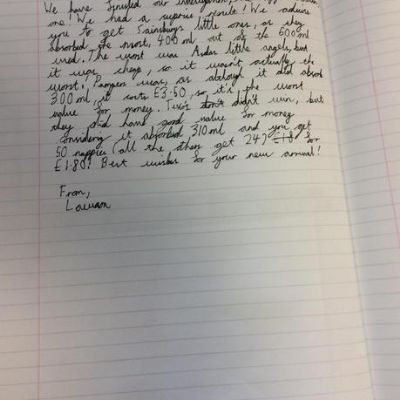 We have finished our investigation,
one! We had a suprise result! We advise
you to get Sainsburys little ones, as they
absorbed the most, 400ml out of the 600ml
used. The worst was Asdas little angels, but
it was cheap, so it wasn't actually the
worst, Pampers was, as although it did absorb
300ml, it costs £3.50 so it's the worst
value for money. Tesco didn't win, but
they did have good value for money
considering it absorbed 310ml and you get
50 nappies (all the others get 24) for
£1.80! Best wishes for your new arrival!
From,